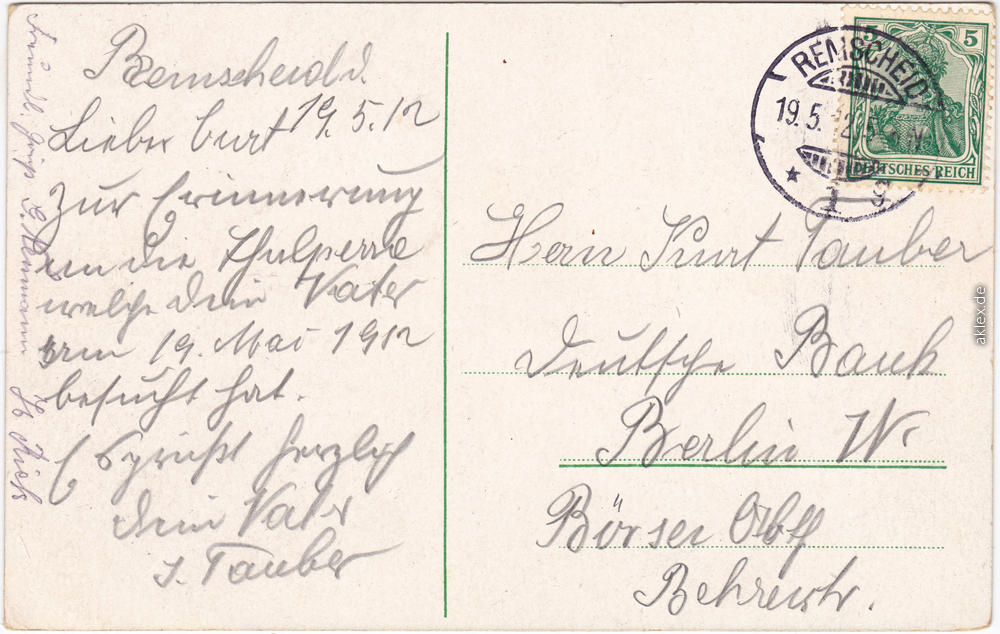 Remscheid d.
19.5.12
Lieber Curt
Zur Erinnerung
an die Thalsperre
welche dein Vater
am 19. Mai 1912
besucht hat.
Es grüßt herzlich
dein Vater
J. Tauber
Freundl. Gruß
REMSCHEID
19.5.
5 5
DEUTSCHES REICH
Herrn Kurt Tauber
Deutsche Bank
Berlin W.
Börsen Abtl
Behrenstr.
aklex.de